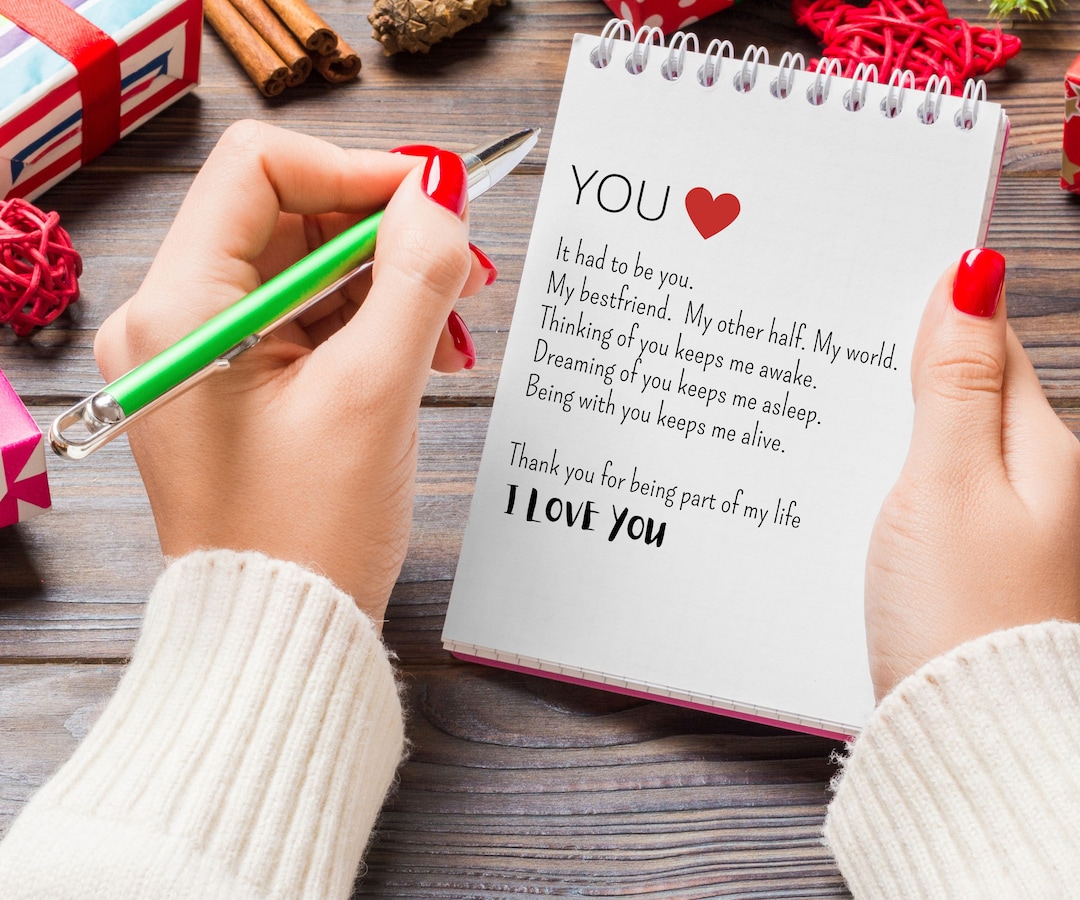 YOU
It had to be you.
My bestfriend. My other half. My world.
Thinking of you keeps me awake.
Dreaming of you keeps me asleep.
Being with you keeps me alive.
Thank you for being part of my life
I LOVE YOU